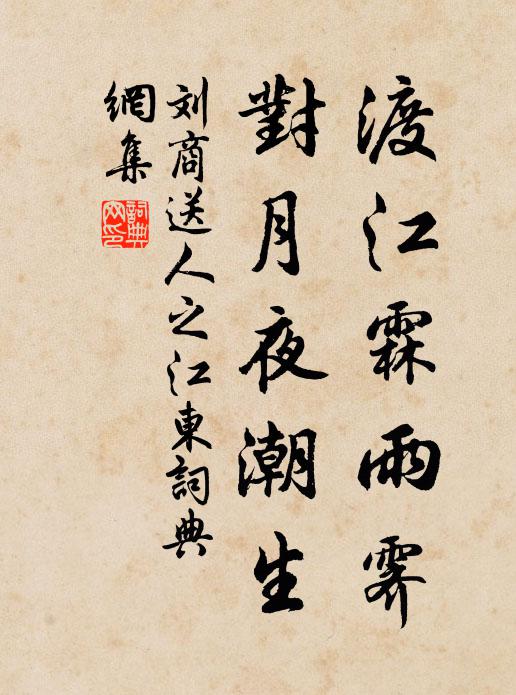 渡江霖雨霁
對月夜潮生
刘商送人之江東詞典
網集
詞典
网印